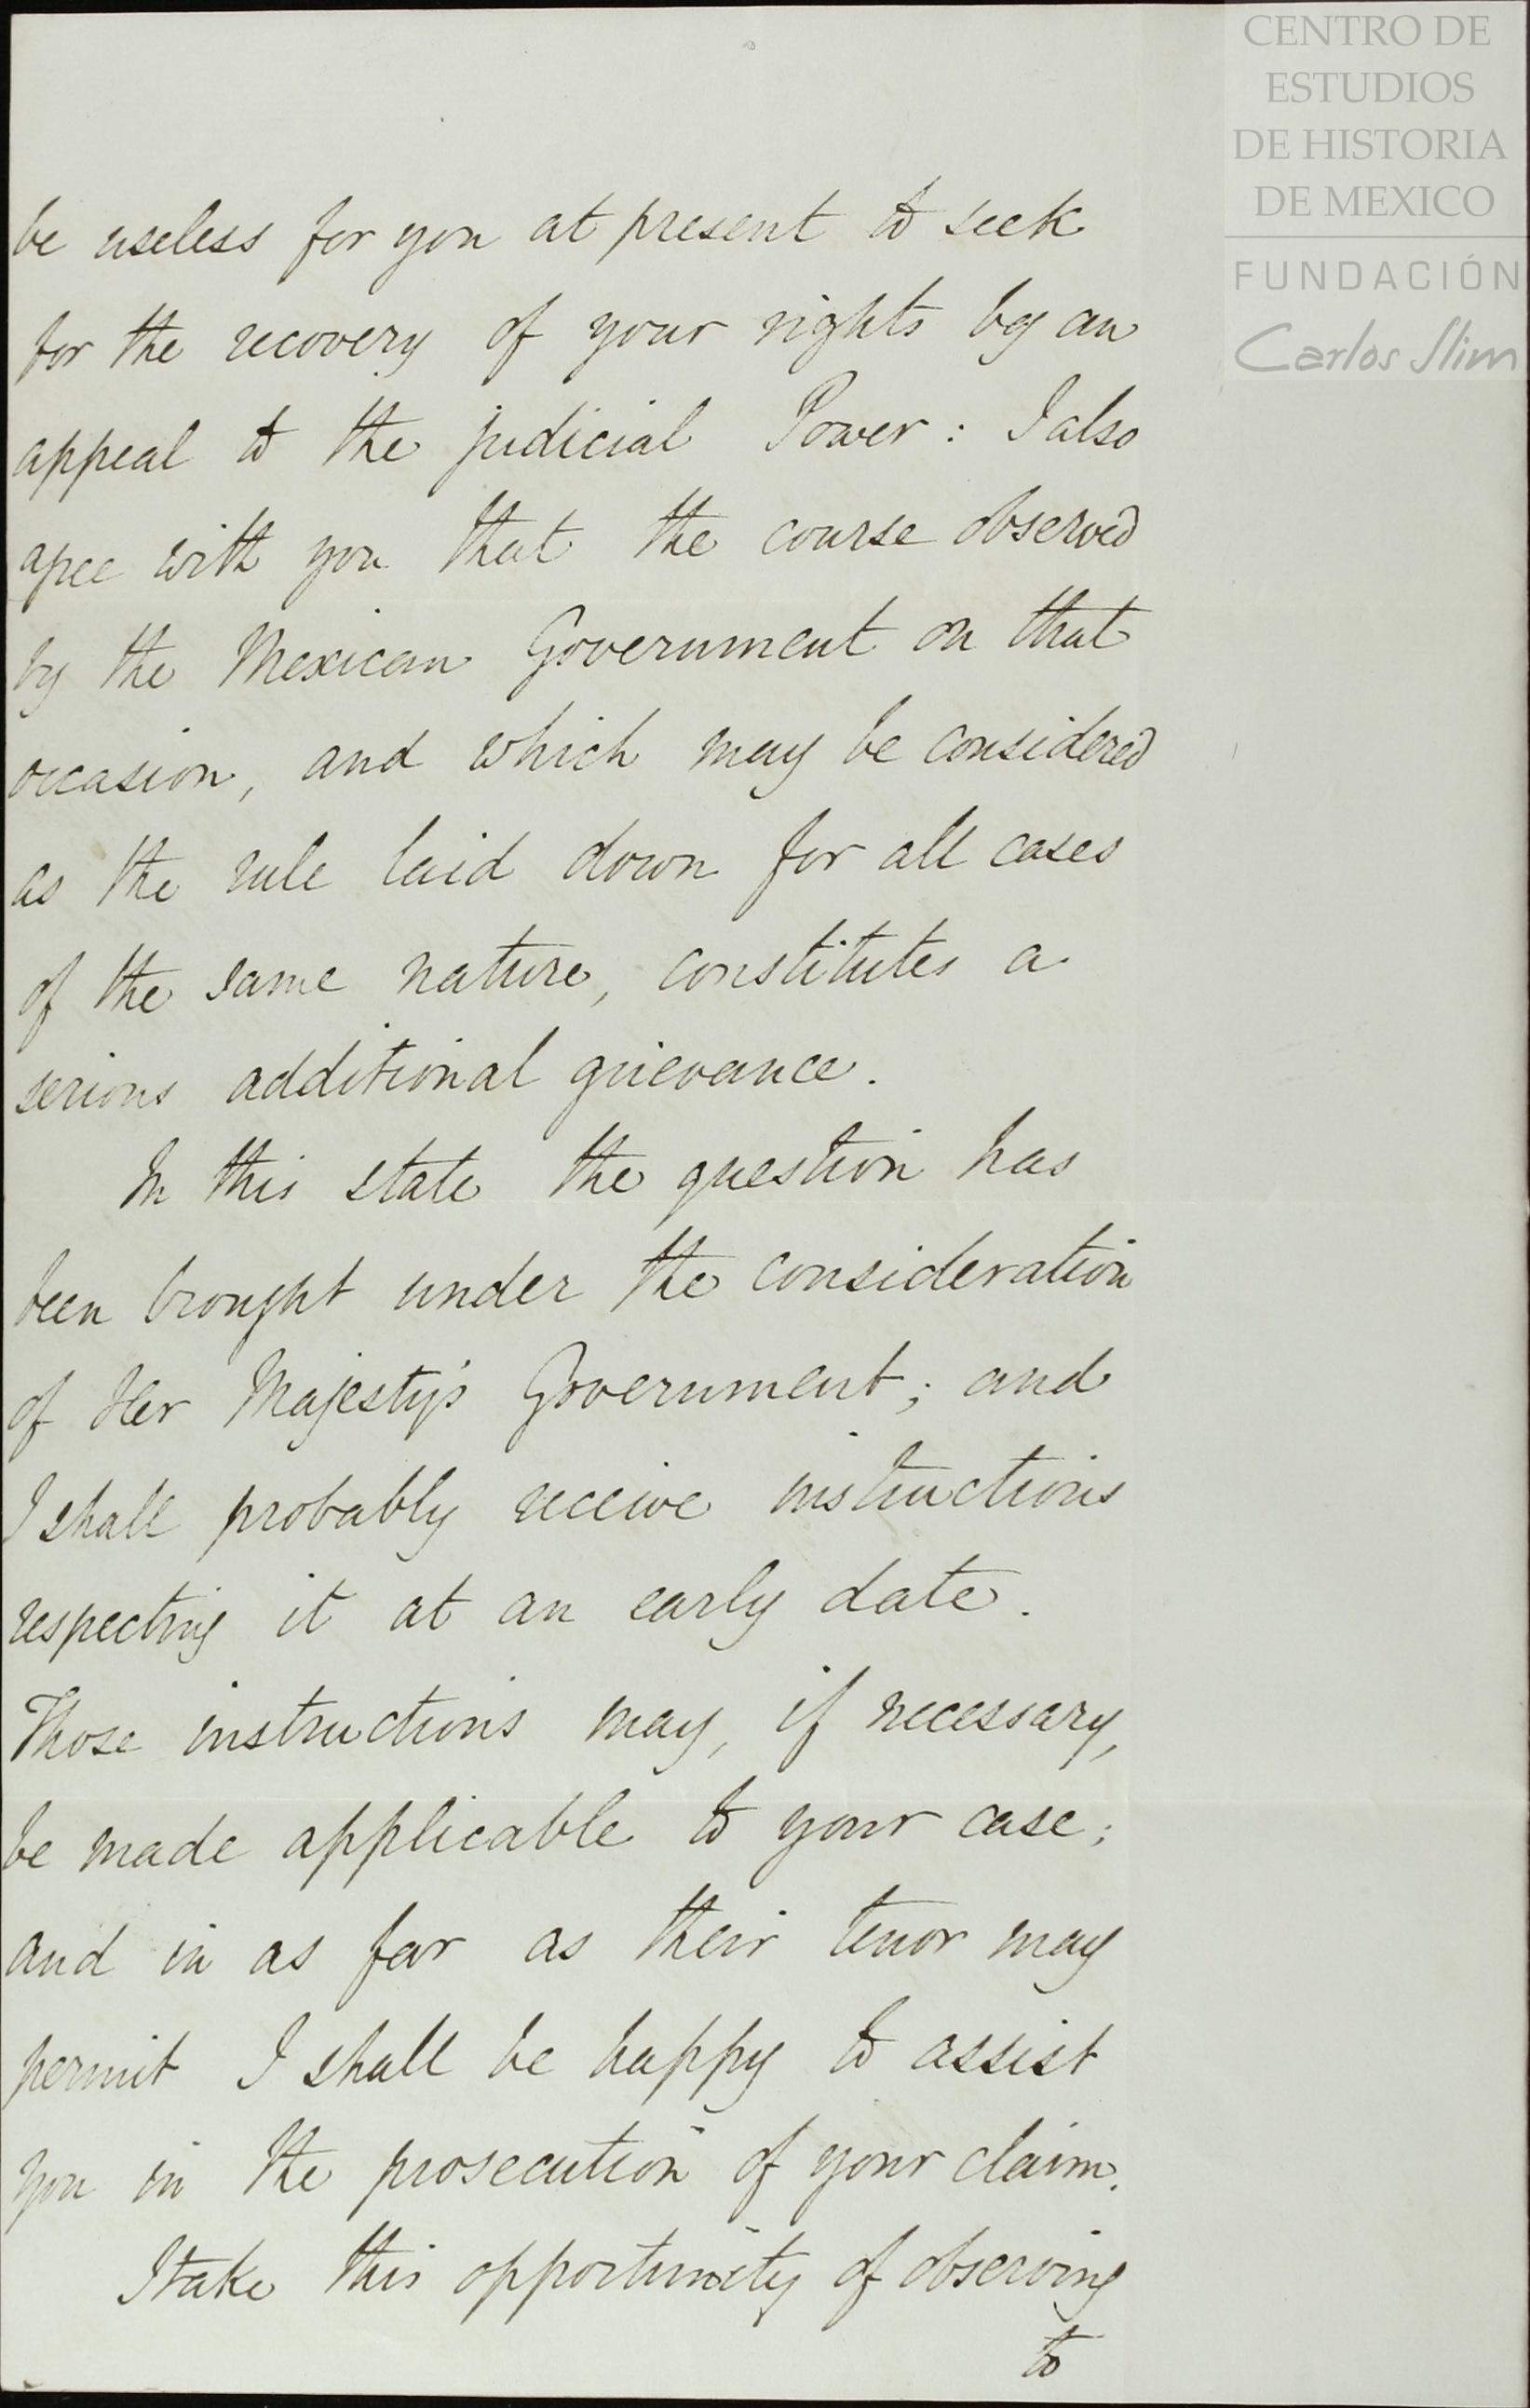 CENTRO DE
ESTUDIOS
DE HISTORIA
DE MEXICO
FUNDACIÓN
Carlos Slim
be useless for you at present to seek
for the recovery of your rights by an
appeal to the judicial Power: I also
agree with you that the course observed
by the Mexican Government on that
occasion, and which may be considered
as the rule laid down for all cases
of the same nature, constitutes a
serious additional grievance.
In this state the question has
been brought under the consideration
of Her Majesty's Government; and
I shall probably receive instructions
respecting it at an early date.
Those instructions may, if necessary,
be made applicable to your case;
and in as far as their tenor may
permit I shall be happy to assist
you in the prosecution of your claim.
I take this opportunity of observing
to